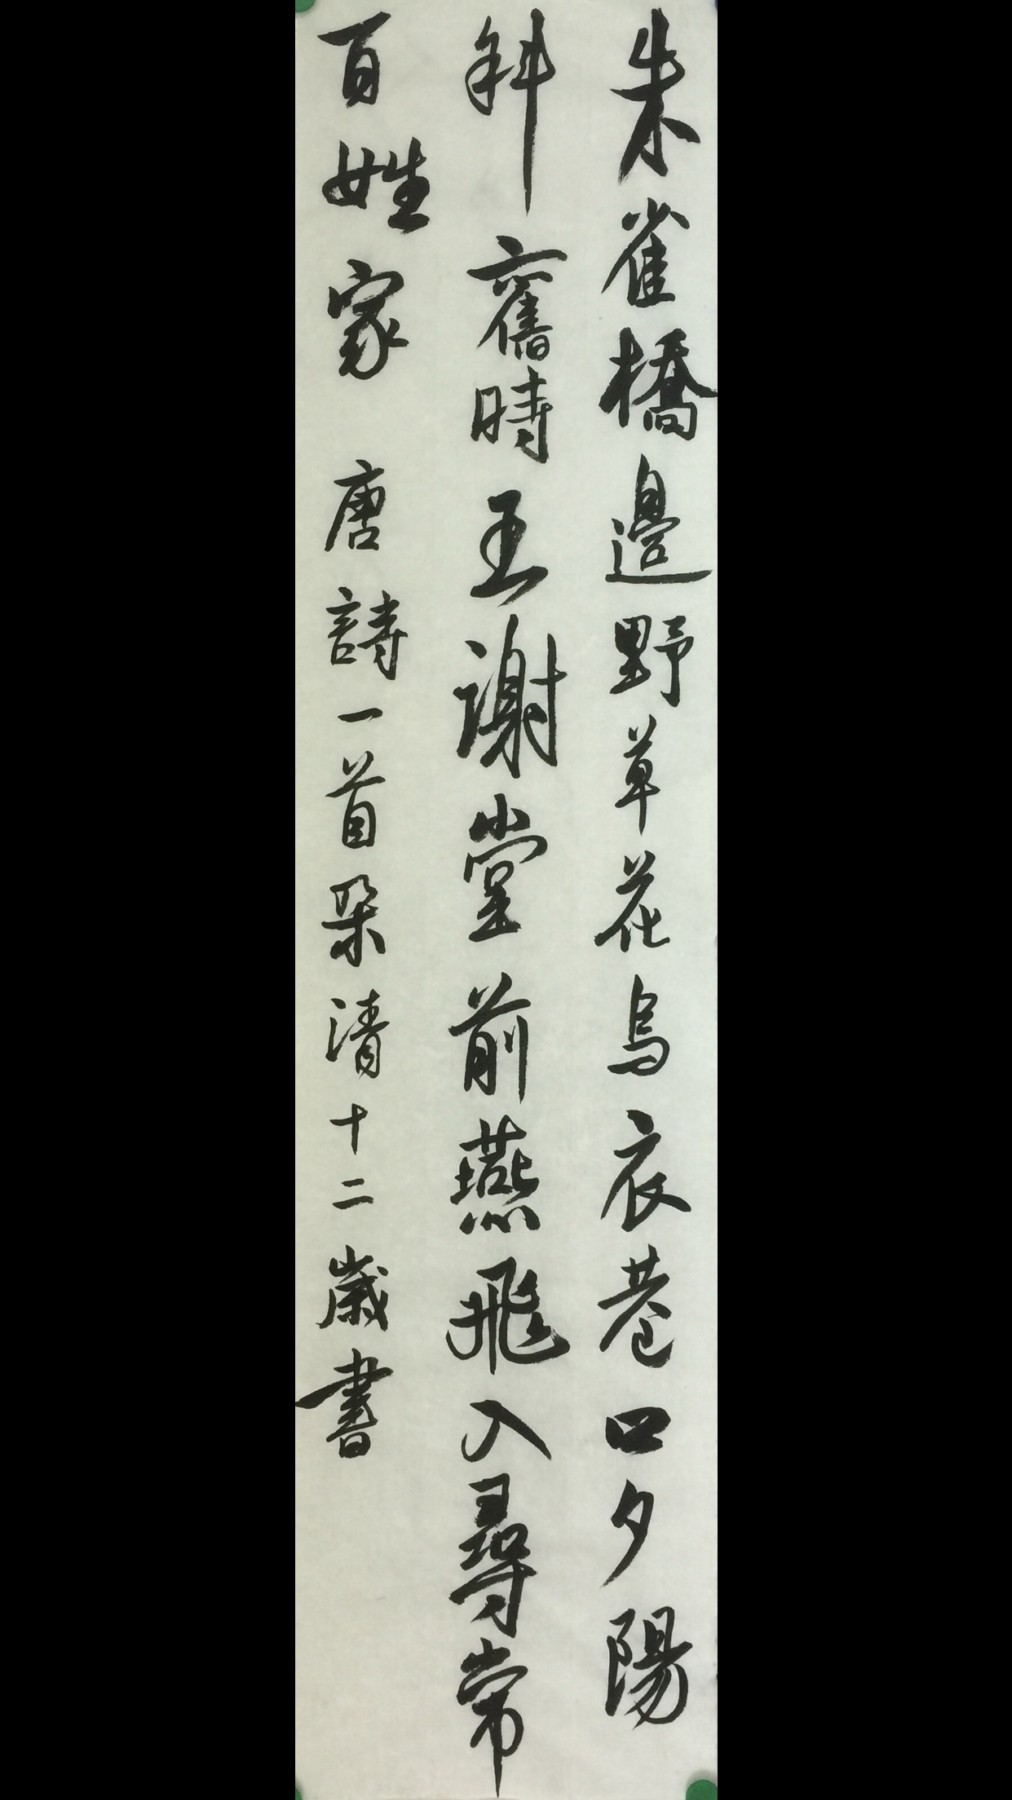 朱雀橋邊野草花烏衣巷口夕陽
斜舊時王謝堂前燕飛入尋常
百姓家 唐詩一首 梁清十二歲書